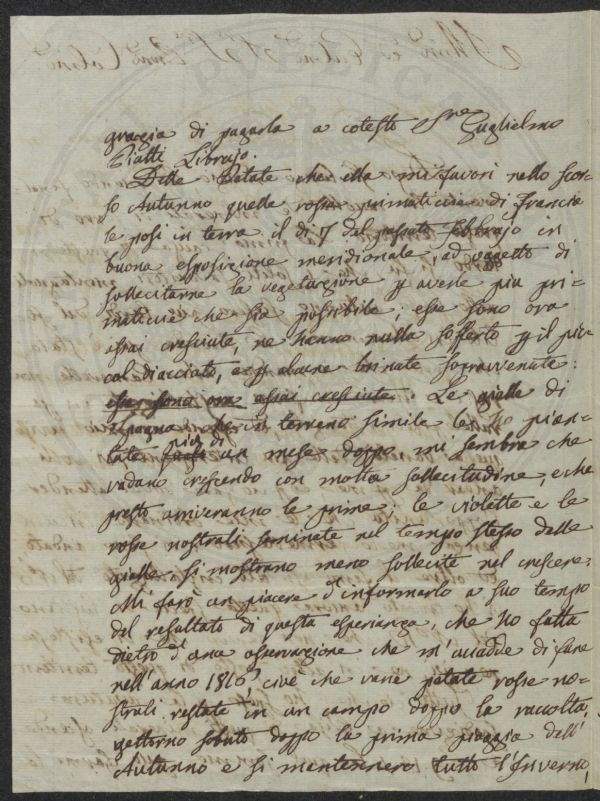 grazzia di pagarla a cotesto Sre Guglielmo
Piatti Librajo.
Delle Patate che ella mi favorì nello scor-
so Autunno quelle rosse primaticcie di Francia
le posi in terra il dì 7 del passato Febbrajo in
buona esposizione meridionale, ad oggetto di
sollecitarne la vegetazione p averle più pri-
maticcie che sia possibile; esse sono ora
assai cresciute, ne hanno nulla sofferto p il pic-
col diacciato, e p alcune brinate sopravvenute:
esse sono ora assai cresciute. Le gialle di
Spagna che in terreno simile le ho pian-
tate più di un mese doppo mi sembra che
vadano crescendo con molta sollecitudine, e che
presto arriveranno le prime; le violette e le
rosse nostrali seminate nel tempo stesso delle
gialle, si mostrano meno sollecite nel crescere.
Mi farò un piacere d'informarlo a suo tempo
del resultato di questa esperienza, che ho fatta
dietro d'una osservazione che m'accadde di fare
nell'anno 1816, cioè che varie patate rosse no-
strali restate in un campo doppo la raccolta,
gettorno subito doppo la prima pioggia dell'
Autunno e si mantennero tutto l'Inverno,